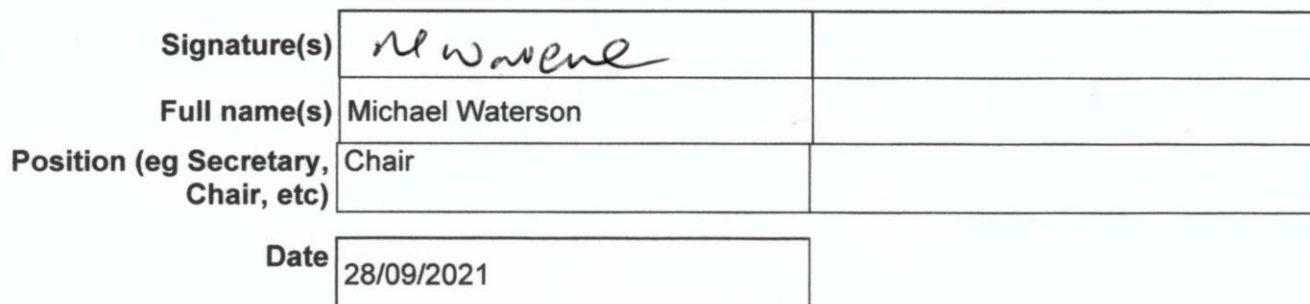 Signature(s)
Full name(s) Michael Waterson
Position (eg Secretary, Chair
Chair, etc)
Date 28/09/2021